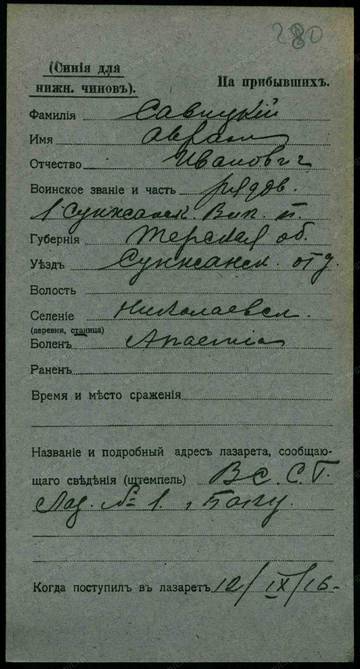 280
(Синія для
нижн. чиновъ).
На прибывшихъ.
Фамилія Савицкій
Имя Аврам
Отчество Иванович
Воинское званіе и часть рядов.
1 Сунженск. Вол. п.
Губернія Терская об.
Уѣздъ Сунженск. отд.
Волость
Селеніе Николаевск.
(деревни, станица)
Боленъ Anaemia
Раненъ
Время и мѣсто сраженія
Названіе и подробный адресъ лазарета, сообщаю-
щаго свѣдѣнія (штемпель) ВС. С. Г.
Лаз. № 1. г. Баку
Когда поступилъ въ лазаретъ 12/IX/16